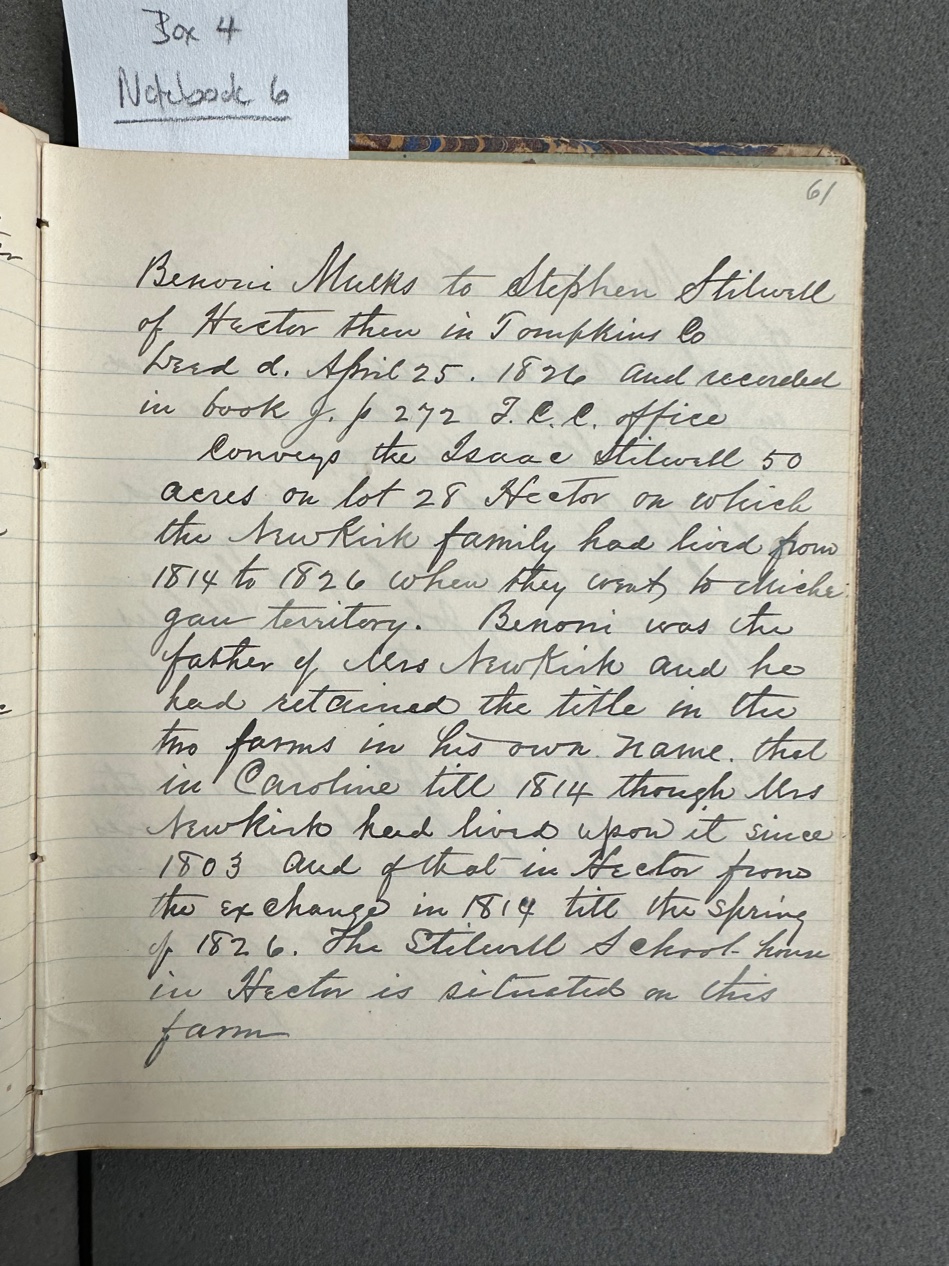 Box 4
Notebook 6
61
Benoni Mulks to Stephen Stilwell
of Hector then in Tompkins Co
Deed d. April 25. 1826 and recorded
in book J. p 272 T.C.C. office
Conveys the Isaac Stilwell 50
acres on lot 28 Hector on which
the NewKirk family had lived from
1814 to 1826 when they went to Michi
gan territory. Benoni was the
father of Mrs NewKirk and he
had retained the title in the
two farms in his own name. that
in Caroline till 1814 though Mrs
Newkirk had lived upon it since
1803 and of that in Hector from
the exchange in 1814 till the spring
of 1826. The Stilwell School-house
in Hector is situated on this
farm